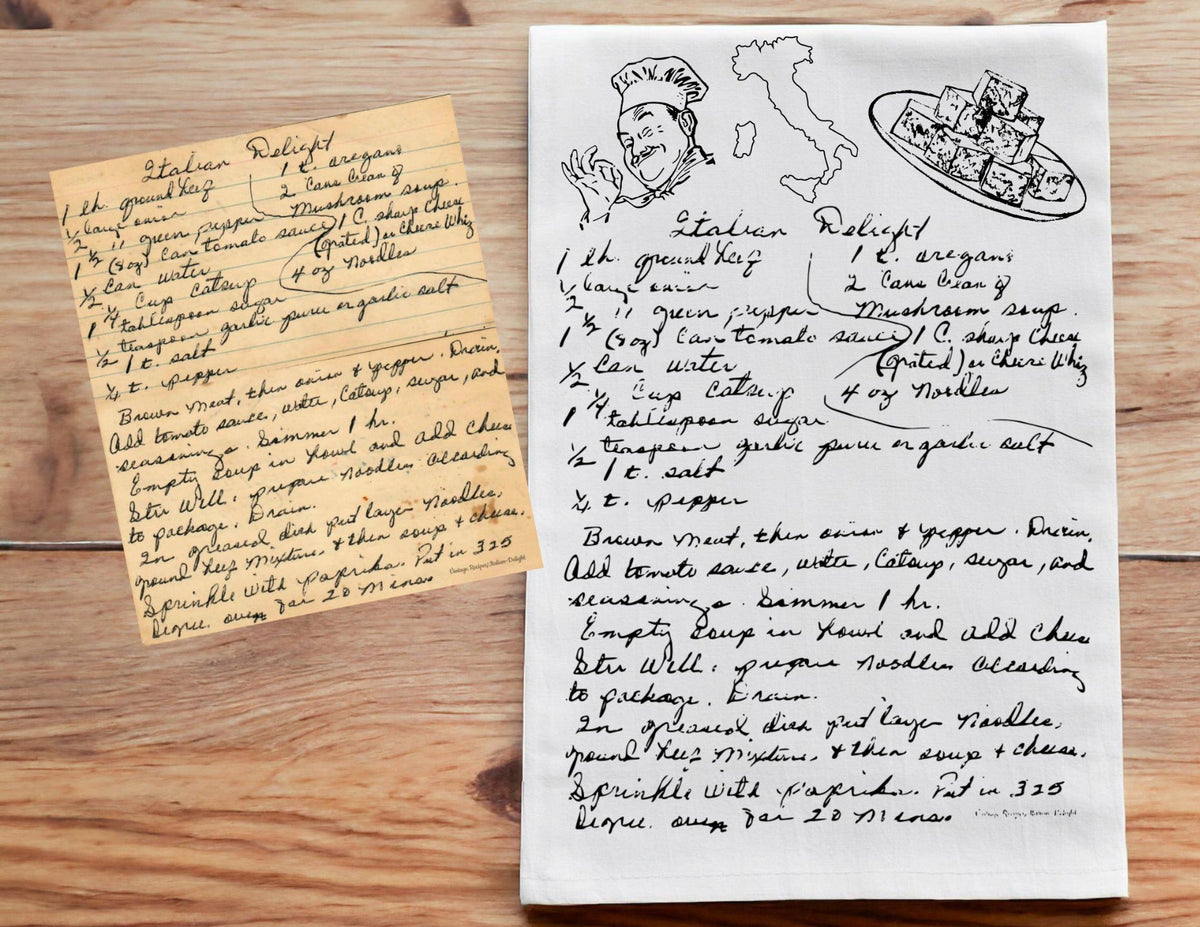 Italian Delight
1 lb. ground beef
1/2 large onion
1/2 " green pepper
1 (8 oz) Can tomato sauce
1/2 Can Water
1/4 Cup Catsup
1 tablespoon sugar
1/2 teaspoon garlic puree or garlic salt
1 t. salt
1/4 t. pepper
1 t. oregano
2 Cans Cream of
Mushroom soup.
1 C. sharp Cheese
(grated) or Cheese Whiz
4 oz Noodles
Brown Meat, then onion & pepper. Drain.
Add tomato sauce, water, Catsup, sugar, and
seasonings. Simmer 1 hr.
Empty Soup in bowl and add cheese
Stir Well. prepare Noodles According
to package. Drain.
In greased dish put layer Noodles,
ground beef Mixture, & then soup & cheese.
Sprinkle with paprika. Put in 325
Degree. oven for 20 Mins.
Vintage Recipes/Italian-Delight
Italian Delight
1 lb. ground beef
1/2 large onion
1/2 " green pepper
1 (8 oz) Can tomato sauce
1/2 Can Water
1/4 Cup Catsup
1 tablespoon sugar
1/2 teaspoon garlic puree or garlic salt
1 t. salt
1/4 t. pepper
1 t. oregano
2 Cans Cream of
Mushroom soup.
1 C. sharp Cheese
(grated) or Cheese Whiz
4 oz Noodles
Brown Meat, then onion & pepper. Drain.
Add tomato sauce, water, Catsup, sugar, and
seasonings. Simmer 1 hr.
Empty Soup in bowl and add cheese
Stir Well. prepare Noodles According
to package. Drain.
In greased dish put layer Noodles,
ground beef Mixture, & then soup & cheese.
Sprinkle with paprika. Put in 325
Degree. oven for 20 Mins.